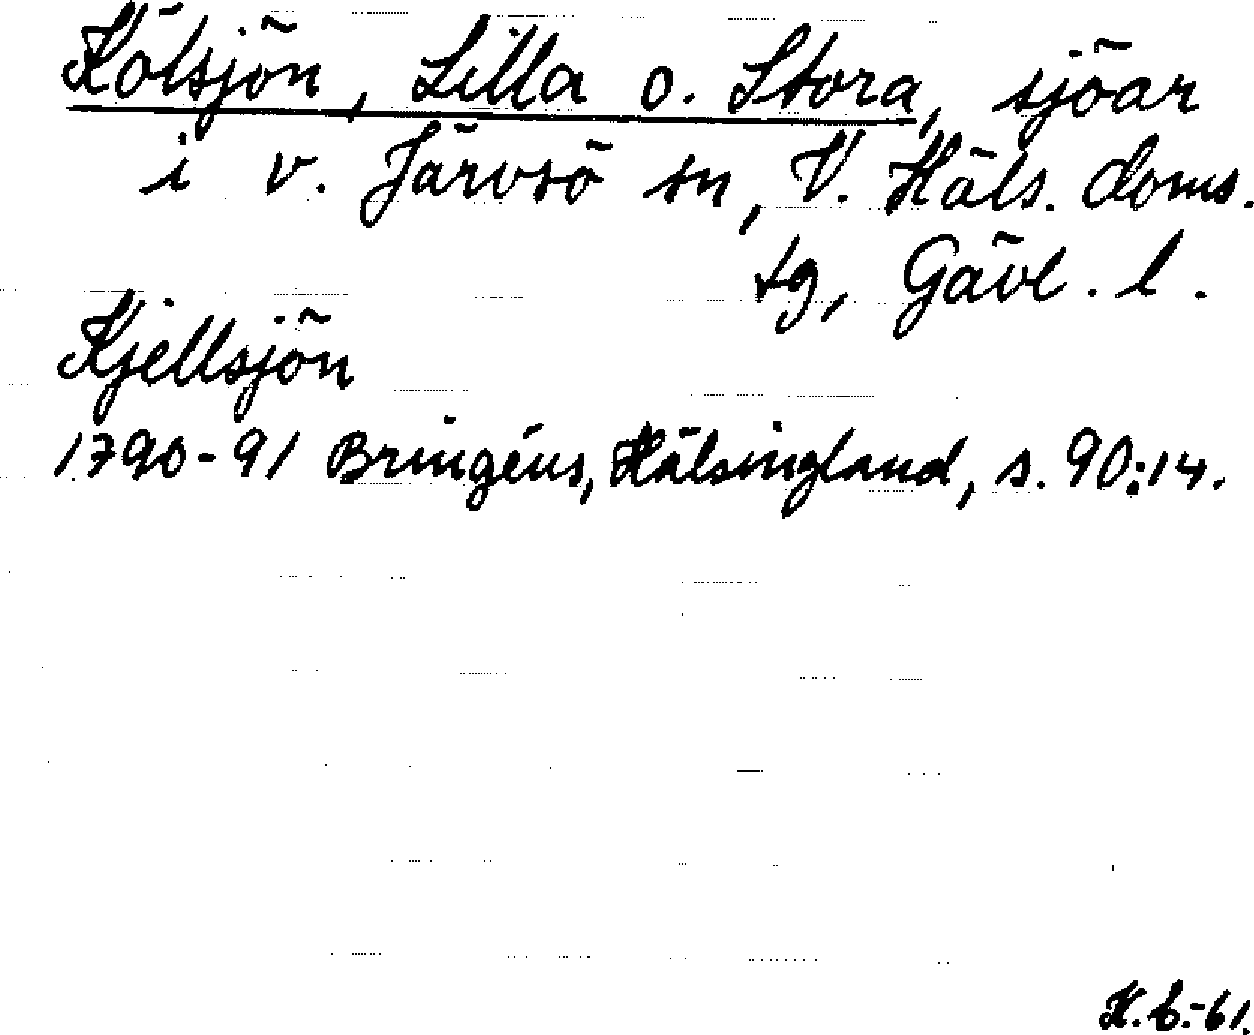 Kölsjön, Lilla o. Stora, sjöar
i v. Järvsö sn, V. Häls. doms.
tg, Gävl. l.
Kjellsjön
1790-91 Bringéus, Hälsingland, s. 90:14.
K.G.-61.